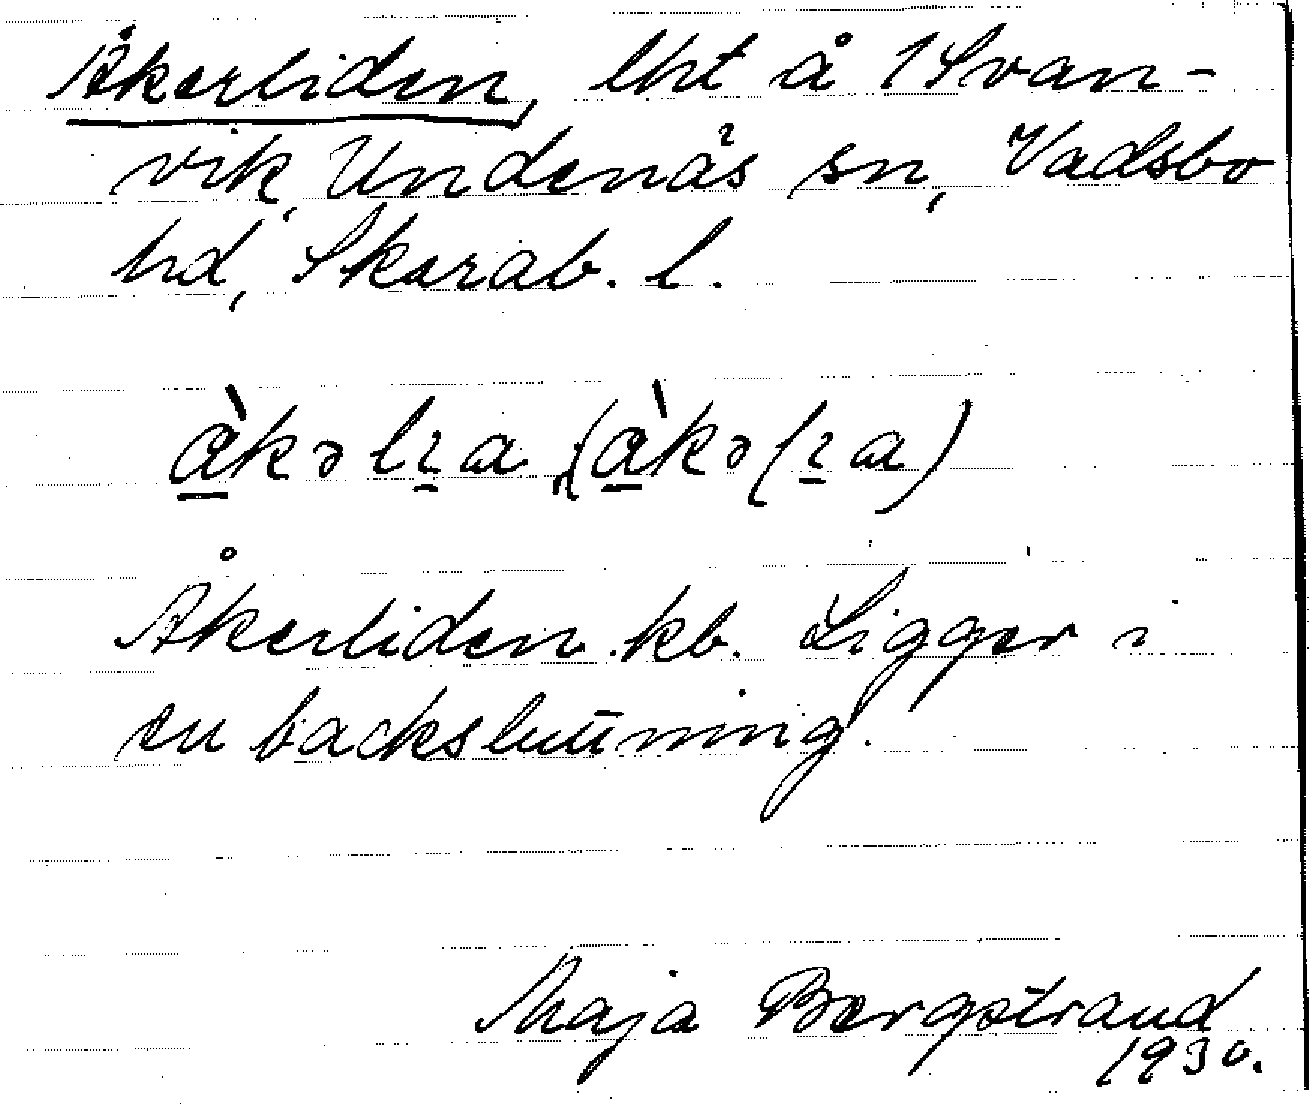 Åkerliden, lht å 1 Svan-
vik, Undenäs sn, Vadsbo
hd, Skarab. l.
Åkerliden kb. Ligger i
en backsluttning.
Maja Bergstrand
1930.